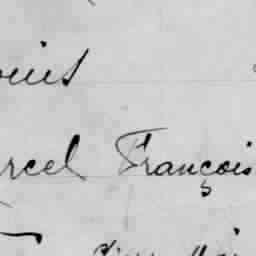 ouis
rcel François